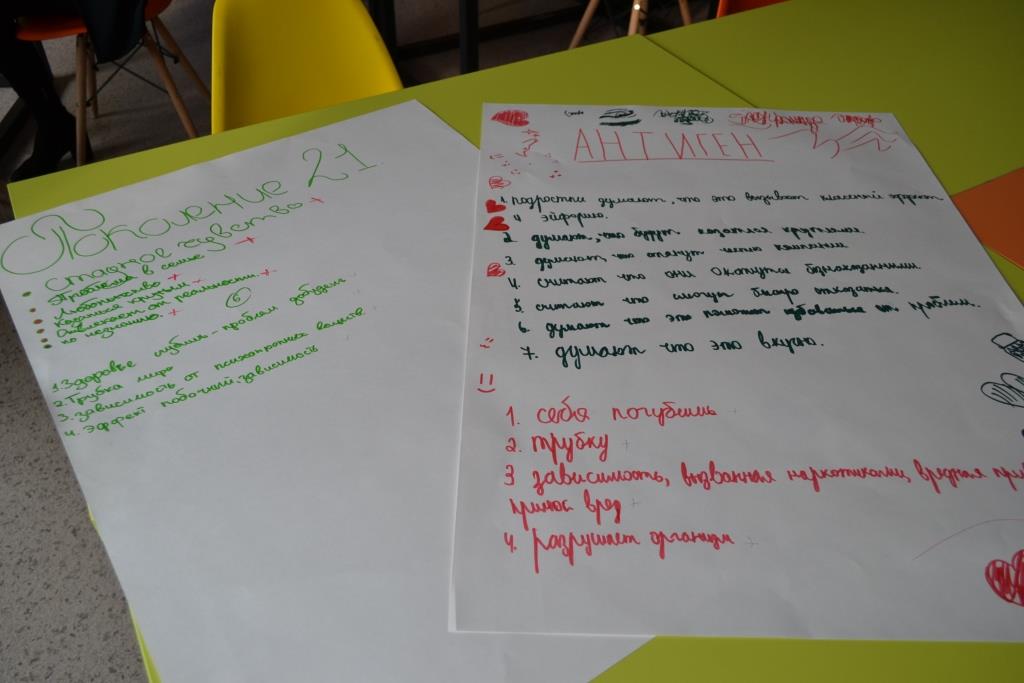 Поколение 21
стадное чувство
Проблемы в семье
Любопытство
Казаться крутым
Отвлекает от реальности
по незнанию.
6
1. Здоровье губишь - проблем добудишь
2. Трубка мира
3. зависимость от психотропных веществ
4. эффект побочный. зависимость
АНТИГЕН
1. подростки думают, что это вызывает классный эффект
и эйфорию.
2. думают, что будут казаться крутыми.
3. думают, что станут частью компании.
4. считают что они окажутся
5. считают что смогут быстро отказаться.
6. думают что это помогает избавиться от проблем.
7. думают что это вкусно.
1. себя погубишь
2. трубку
3 зависимость, вызванная наркотиками, вредная
вред
4. разрушает организм